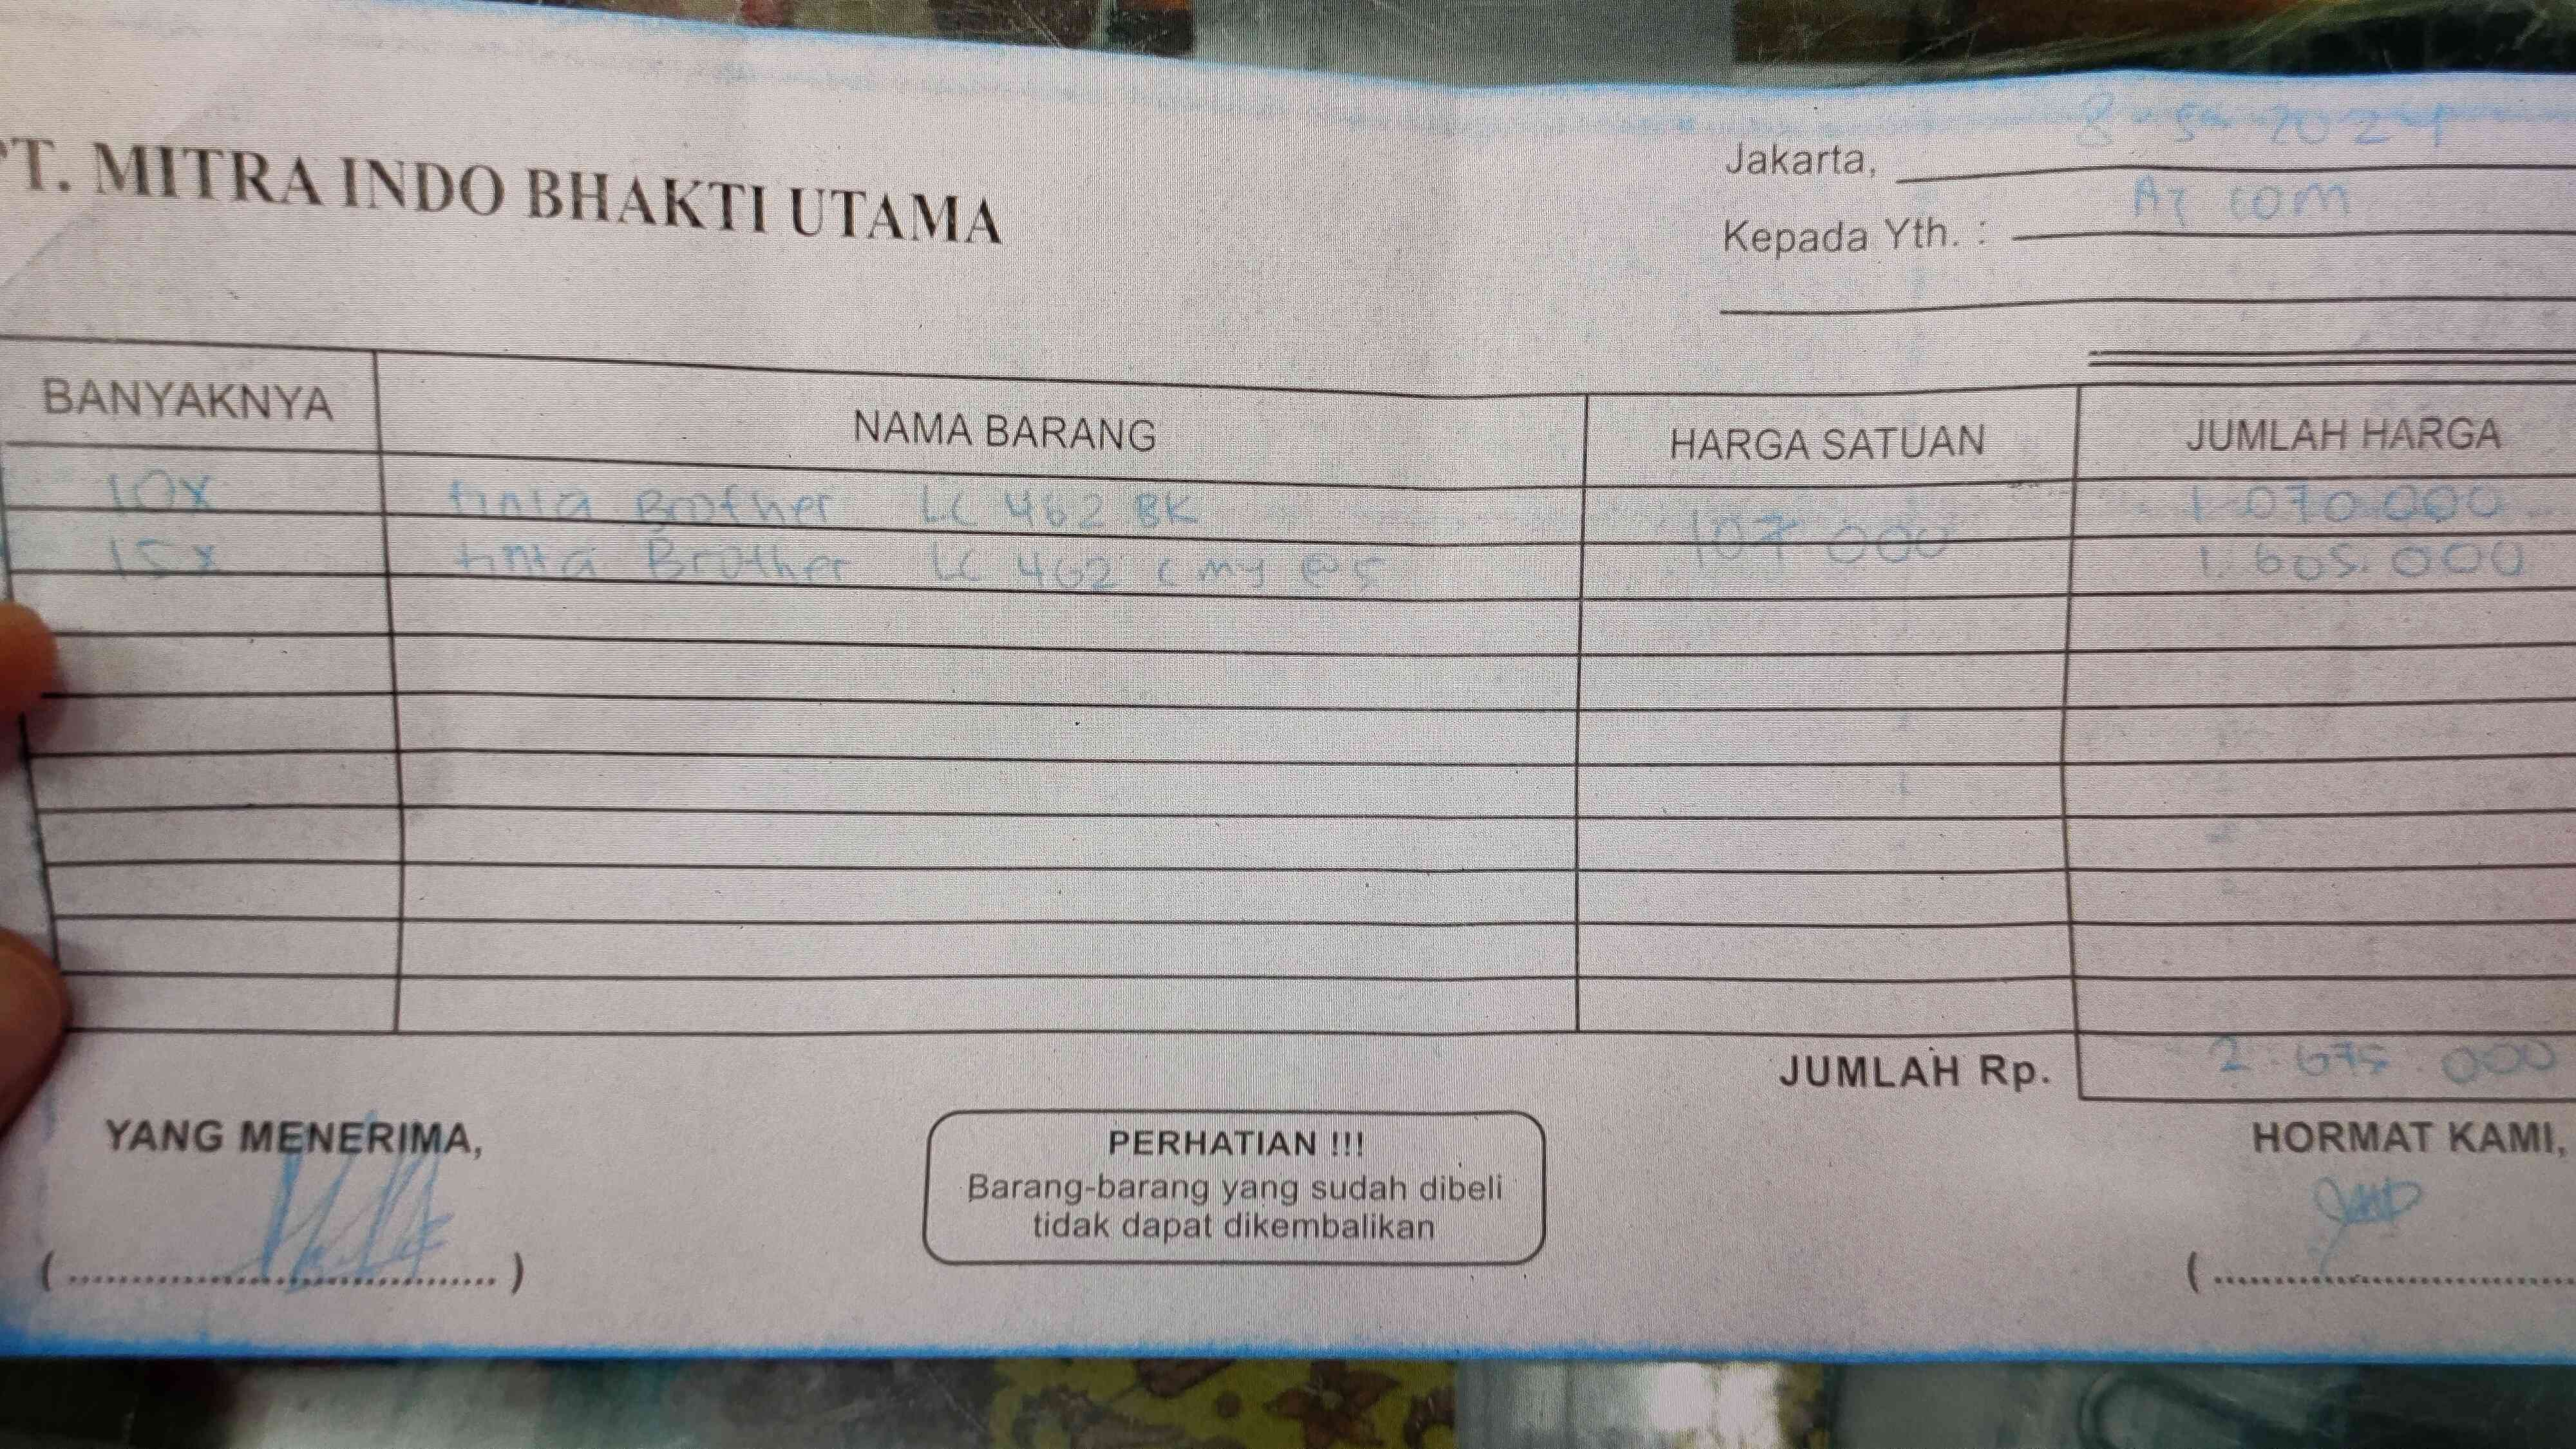 PT. MITRA INDO BHAKTI UTAMA
Jakarta, 2024
Kepada Yth. : Az com
BANYAKNYA NAMA BARANG HARGA SATUAN JUMLAH HARGA
10x tinta Brother LC 462 BK 107 000 1.070.000
15x tinta Brother LC 462 c my @5 1.605.000
JUMLAH Rp. 2.675.000
YANG MENERIMA,
PERHATIAN !!!
Barang-barang yang sudah dibeli
tidak dapat dikembalikan
HORMAT KAMI,